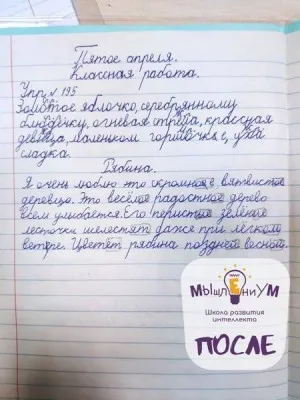 Пятое апреля.
Классная работа.
Упр. № 195
Золотое яблочко, серебрянному
блюдечку, огневая
девица, маленьком
сладка.
Рябина.
Я очень люблю это скромное вятвистое
деревцо. Это весёлое радостное дерево
всем улыбается. Его перистые зелёные
листочки шелестят даже при лёгком
ветере. Цветёт рябина поздней весной.
МЫШЛЕНИУМ
Школа развития
интеллекта
ПОСЛЕ